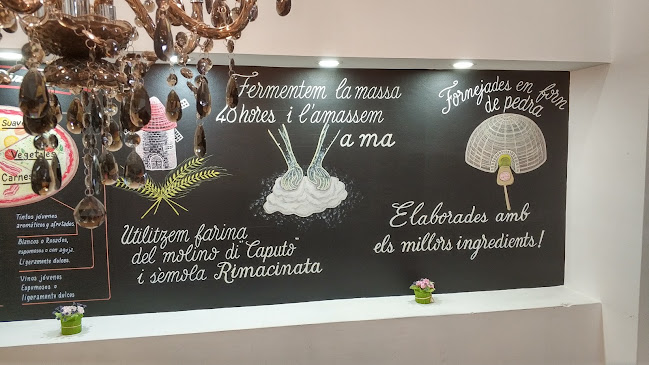 Suave
Vegetales
Carnes
Tintos jóvenes
aromáticos y afrutados.
Blancos o Rosados,
espumosos o con aguja.
Ligeramente dulces.
Vinos jóvenes
Espumosos o
ligeramente dulces
Utilitzem farina
del molino di "Caputo"
i sèmola Rimacinata
Fermentem la massa
48 hores i l'amassem
a ma
Fornejades en forn
de pedra
Elaborades amb
els millors ingredients!